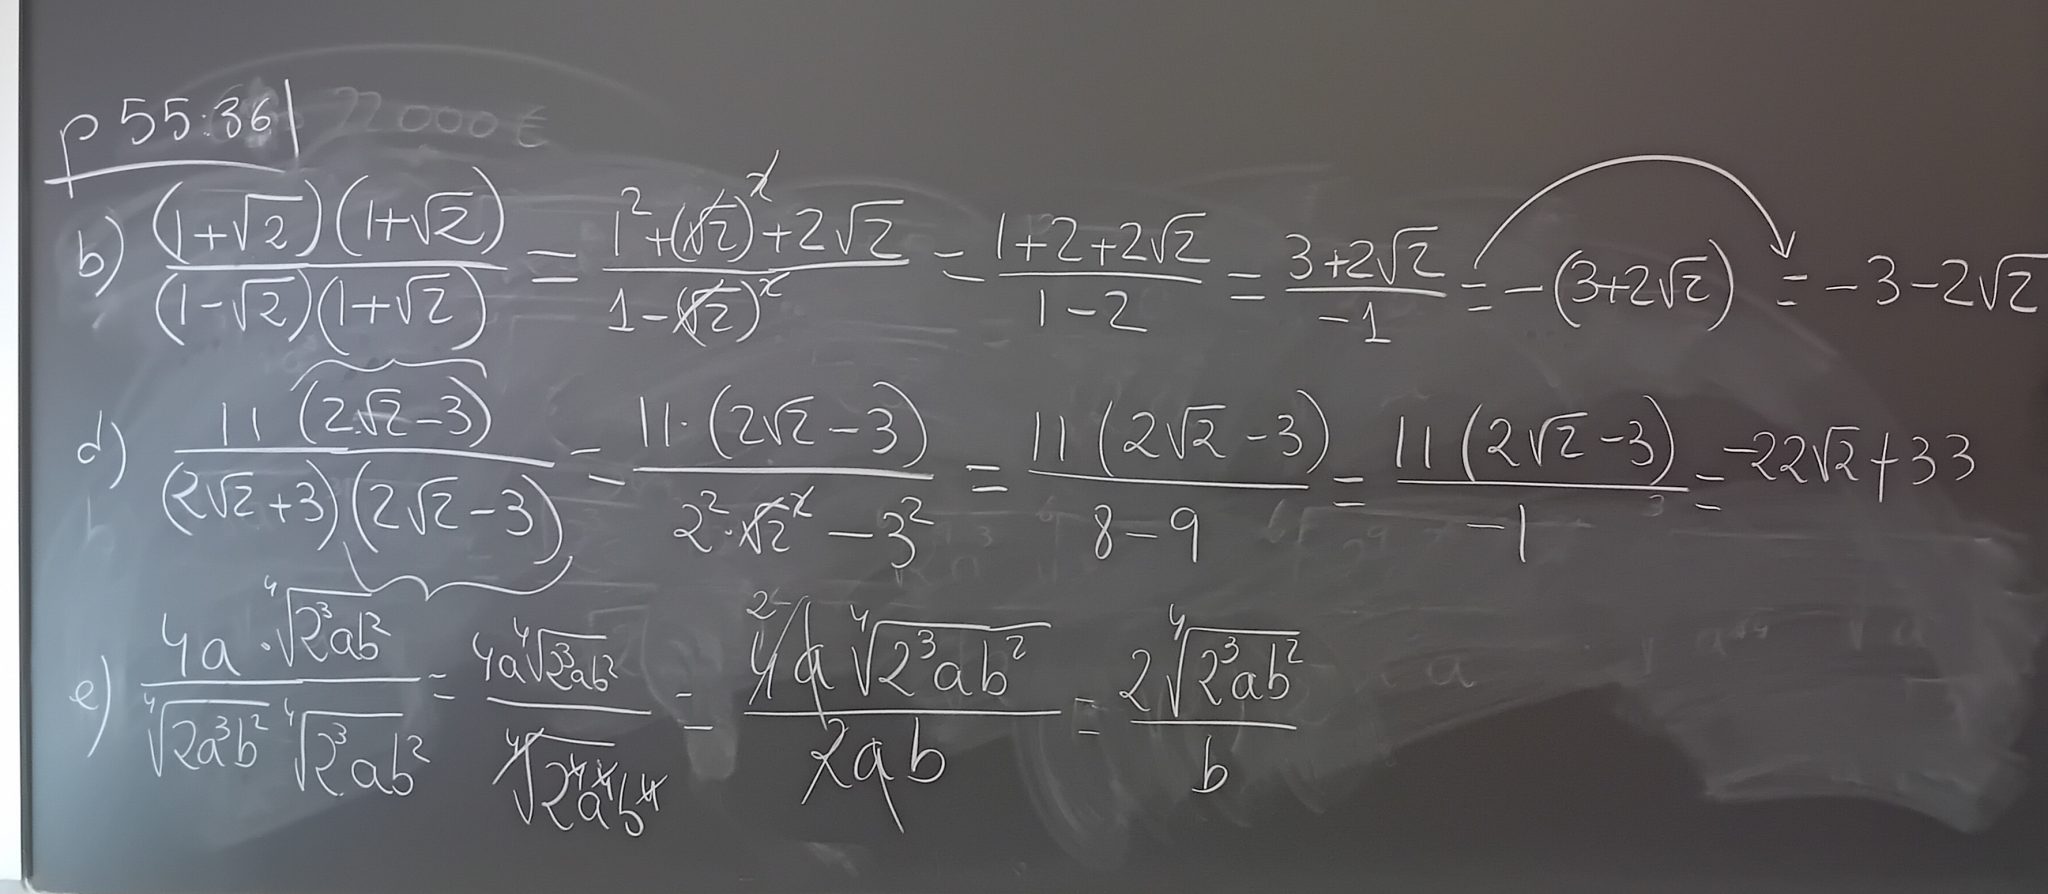 p 55:36
22 000 €
b) \frac{(1+\sqrt{2})(1+\sqrt{2})}{(1-\sqrt{2})(1+\sqrt{2})} = \frac{1^2+(\sqrt{2})^2+2\sqrt{2}}{1-(\sqrt{2})^2} = \frac{1+2+2\sqrt{2}}{1-2} = \frac{3+2\sqrt{2}}{-1} = -(3+2\sqrt{2}) = -3-2\sqrt{2}
d) \frac{11(2\sqrt{2}-3)}{(2\sqrt{2}+3)(2\sqrt{2}-3)} = \frac{11\cdot(2\sqrt{2}-3)}{2^2\cdot\sqrt{2}^2-3^2} = \frac{11(2\sqrt{2}-3)}{8-9} = \frac{11(2\sqrt{2}-3)}{-1} = -22\sqrt{2}+33
e) \frac{4a\cdot\sqrt[4]{2^3ab^2}}{\sqrt[4]{2a^3b^2}\sqrt[4]{2^3ab^2}} = \frac{4a\sqrt[4]{2^3ab^2}}{\sqrt[4]{2^4a^4b^4}} = \frac{4a\sqrt[4]{2^3ab^2}}{2ab} = \frac{2\sqrt[4]{2^3ab^2}}{b}